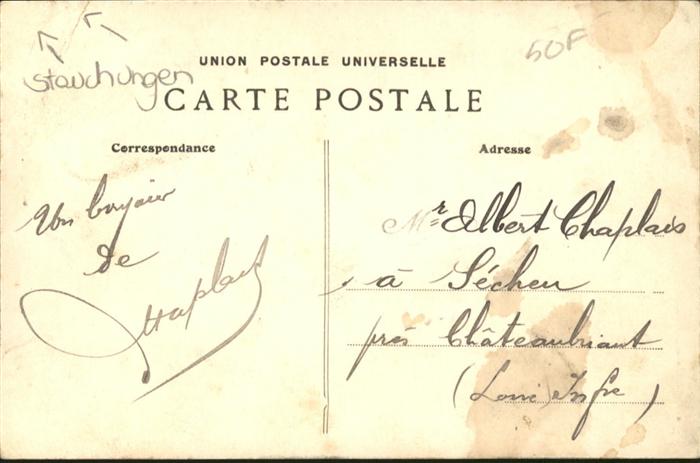 stauchungen
50F
UNION POSTALE UNIVERSELLE
CARTE POSTALE
Correspondance
Adresse
Un bonjour
de
Chaplais
Mr Albert Chaplais
à Sécheu
près Châteaubriant
(Loire Infre)